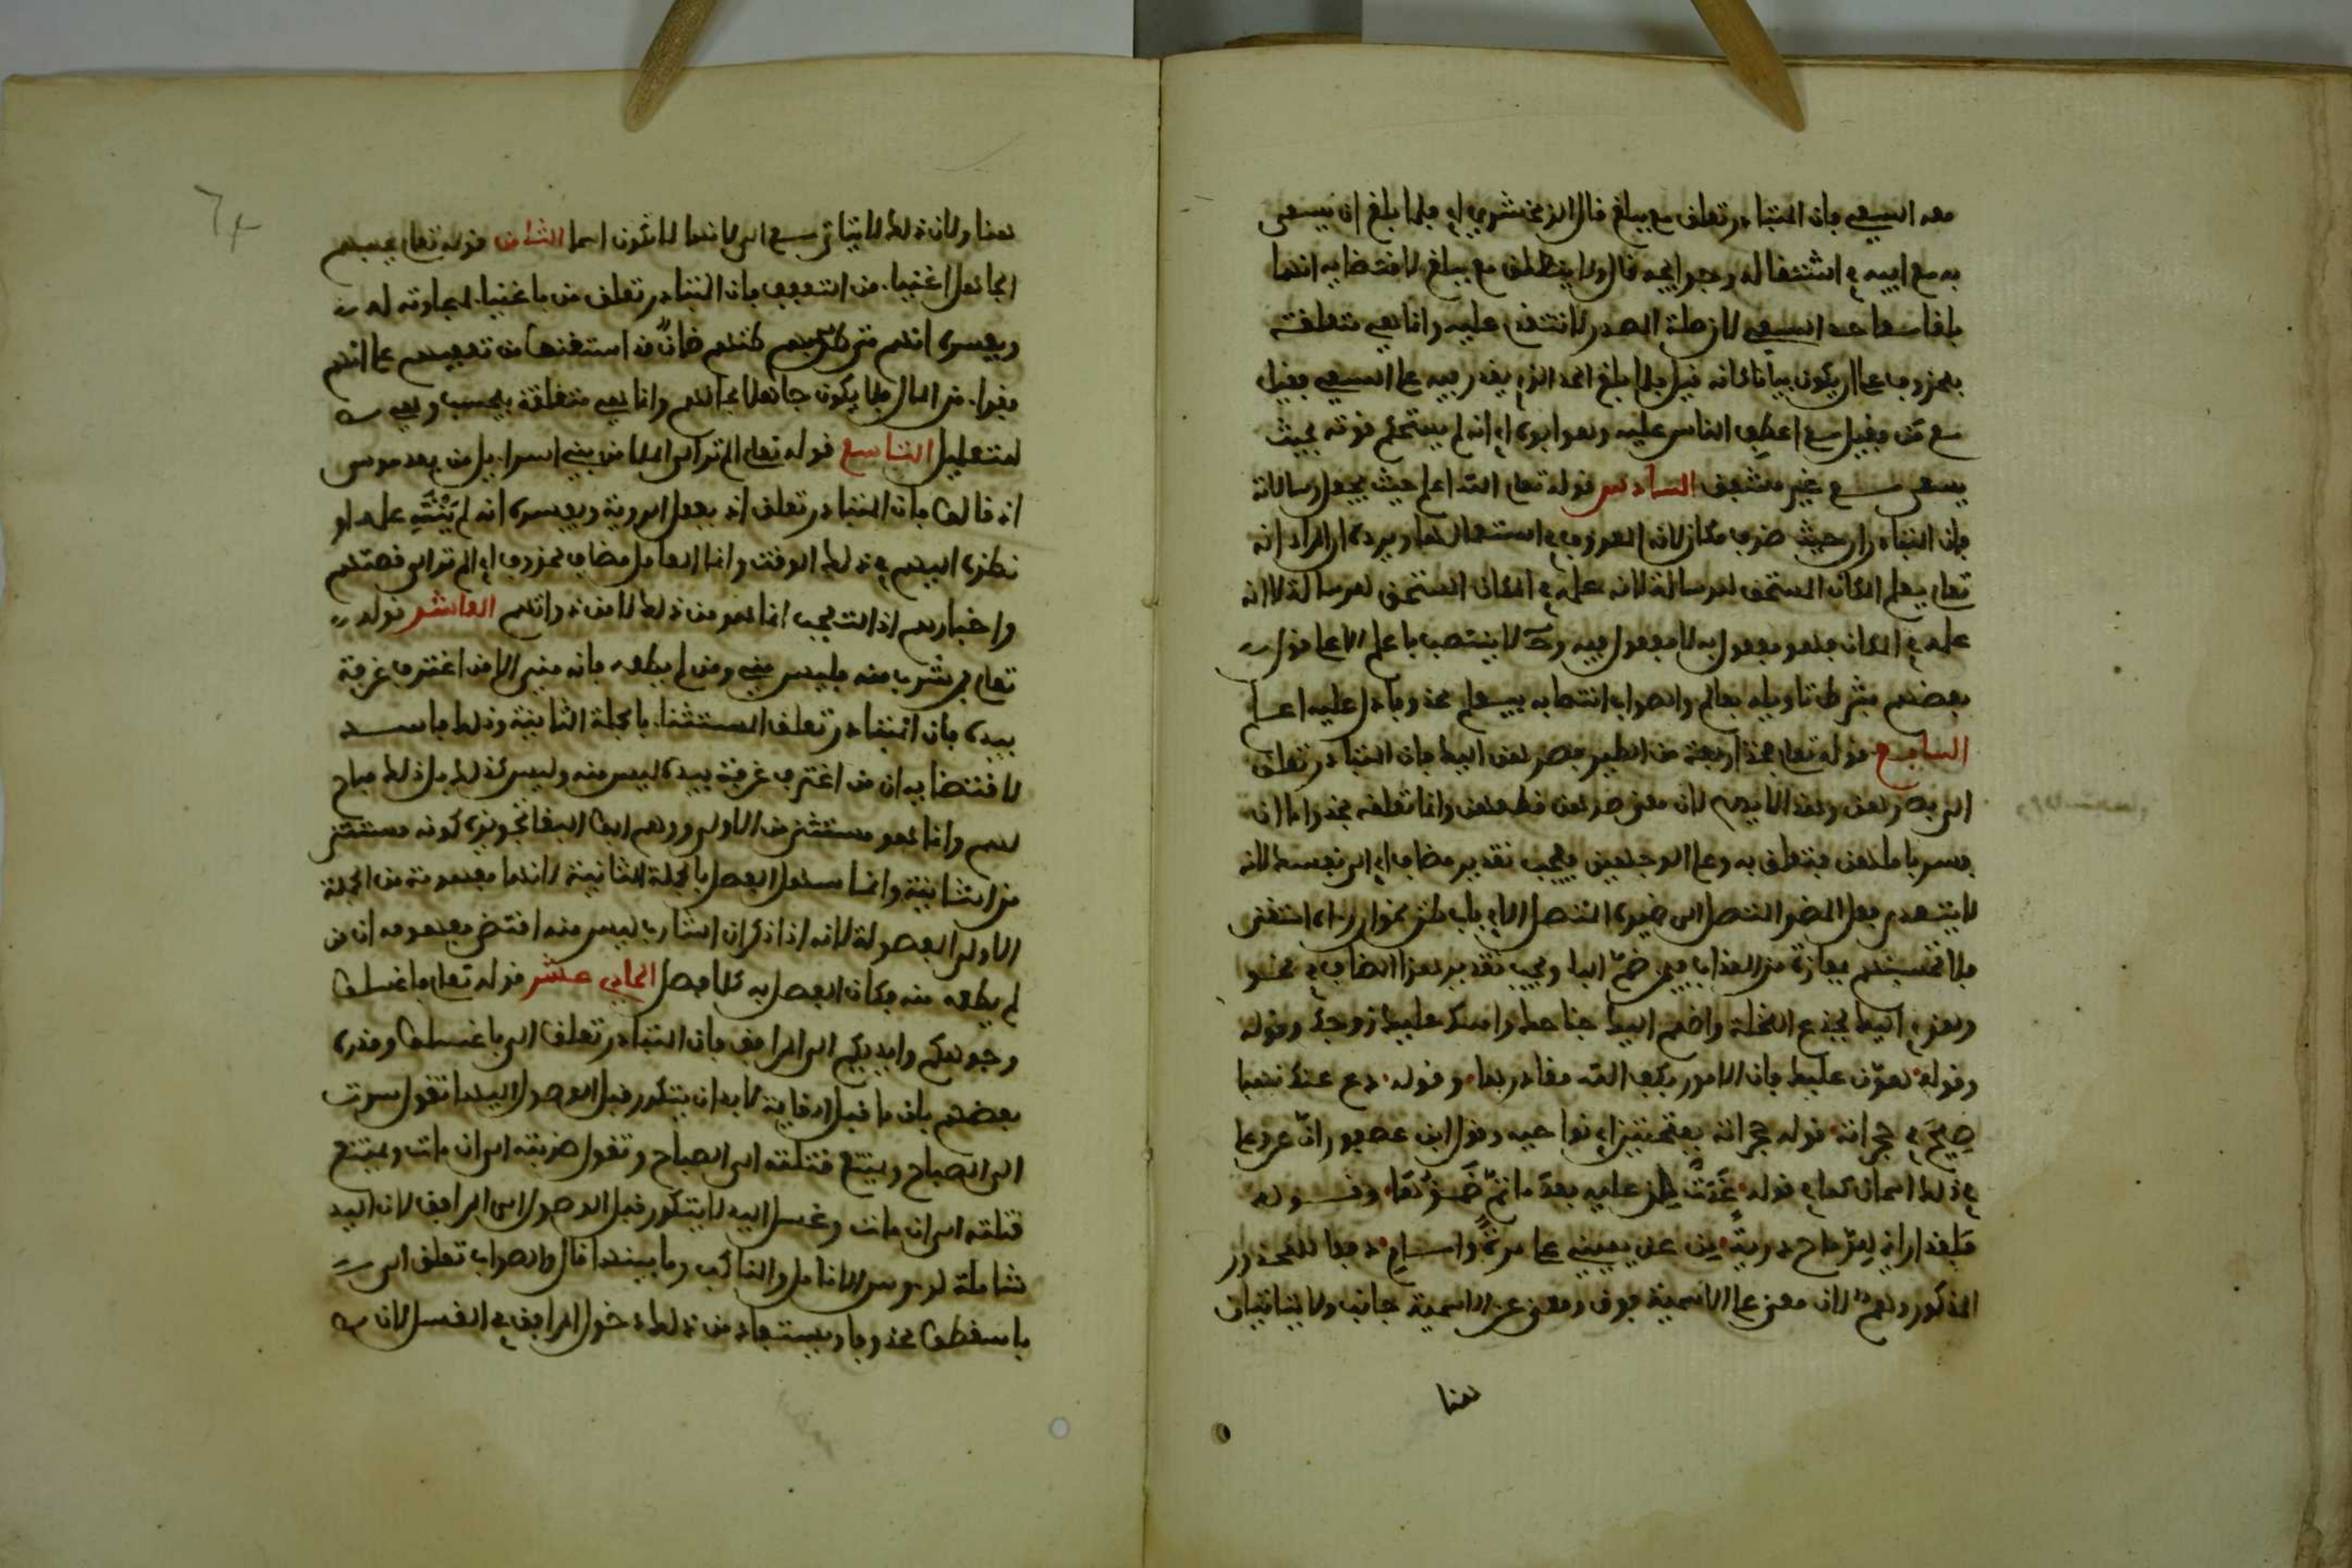 معه السعي فإن المتبادر تعلق مع ببلغ قال الزمخشري اي فلما بلغ ان يسعى
به مع ابيه في اشتغاله وحوائجه قال ولا يتعلق مع ببلغ لاقتضايه انهما
بلغا معا حد السعي لا بصلة المصدر لا تتقدم عليه وانما هي متعلقة
بمحذوف على ان يكون بيانا كانه قيل فلما بلغ الحد الذي يقدر فيه على السعي فقيل
مع من فقيل مع اعطف الناس عليه وهو ابوه اي انه لم يستحكم قوته بحيث
يسعى مع غير مشفق السادس قوله تعلى الله اعلم حيث يجعل رسالاته
فإن المتبادر ان حيث ظرف مكان لانه المعروف في استعمالها ويرده ان المراد انه
تعلى يعلم المكان المستحق للرسالة لا ان علمه في المكان المستحق للرسالة لا انه
علمه في المكان فهو مفعول به لا مفعول فيه وح لا ينتصب باعلم الا على قول
بعضهم بشرط تاويله بعالم والصواب انتصابه بيعلم محذوفا دل عليه اعلم
السابع قوله تعلى فخذ اربعة من الطير فصرهن اليك فان المتبادر تعلق
الى بصرهن وهذا لا يصح لان معنى صرهن قطعهن وانما تعلقه بخذ واما ان
فسر باملهن فيتعلق به وعلى الوجهين يجب تقدير مضاف اي الى نفسك لانه
لا يتعدى فعل المضمر المتصل الى ضميره المتصل الا في باب ظن نحو ان رءاه استغنى
فلا تحسبنهم بمفازة من العذاب فيمن ضم الباء ويجب تقدير هذا المضاف في نحو
وهزي اليك بجذع النخلة واضمم اليك جناحك وامسك عليك زوجك وقوله
وقوله هون عليك فان الامور بكف الاله مقاديرها وقوله دع عنك نهبا
صيح في حجراته قوله حجراته بفتحتين اي نواحيه وقول ابن عصفور ان عن وعلى
في ذلك اسمان كما في قوله غدت من عليه بعد ما تم ظمؤها وقوله
فلقد اراني للرماح درية من عن يميني مرة وامامي دفعا للمحذور
المذكور وهم لان معنى على الاسمية فوق ومعنى عن الاسمية جانب ولا يتاتيان
هنا
هنا ولان ذلك لا يتاتى مع الى لانها لا تكون اسما الثامن قوله تعلى يحسبهم
الجاهل اغنياء من التعفف فان المتبادر تعلق من باغنياء لمجاورته له
ويفسده انهم متى ظنهم ظان قد استغنوا من تعففهم علم انهم
فقراء من المال فلا يكون جاهلا بحالهم وانما هي متعلقة بيحسب وهي
للتعليل التاسع قوله تعلى الم تر الى الملا من بني اسراءيل من بعد موسى
اذ قالوا فان المتبادر تعلق اذ بفعل الروية ويفسده انه لم ينته علمه او
نظره اليهم في ذلك الوقت وانما العامل مضاف محذوف اي الم تر الى قصتهم
واخبارهم اذ التعجب انما هو من ذلك لا من ذواتهم العاشر قوله
تعلى فمن شرب منه فليس مني ومن لم يطعمه فانه مني الا من اغترف غرفة
بيده فان المتبادر تعلق الاستثناء بالجملة الثانية وذلك فاسد
لاقتضايه ان من اغترف غرفة بيده ليس منه وليس كذلك بل ذلك مباح
لهم وانما هو مستثنى من الاولى ووهم ابو البقا في تجويزه كونه مستثنى
من الثانية وانما سهل الفصل بالجملة الثانية لانها مفهومة من الجملة
الاولى المفصولة لانه اذا ذكر ان الشارب ليس منه اقتضى مفهومه ان من
لم يطعمه منه فكان الفصل به كلا فصل الحادي عشر قوله تعلى فاغسلوا
وجوهكم وايديكم الى المرافق فان المتبادر تعلق الى باغسلوا وقد رده
بعضهم بان ما قبل الغاية لا بد ان يتكرر قبل الوصول اليها تقول سرت
الى الصباح ويمتنع قتلته الى الصباح وتقول ضربته الى ان مات ويمتنع
قتلته الى ان مات وغسل اليد لا يتكرر قبل الوصول الى المرافق لان اليد
شاملة لرءوس الانامل والمناكب وما بينهما قال والصواب تعلق الى
باسقطوا محذوفا ويستفاد من ذلك دخول المرافق في الغسل لان